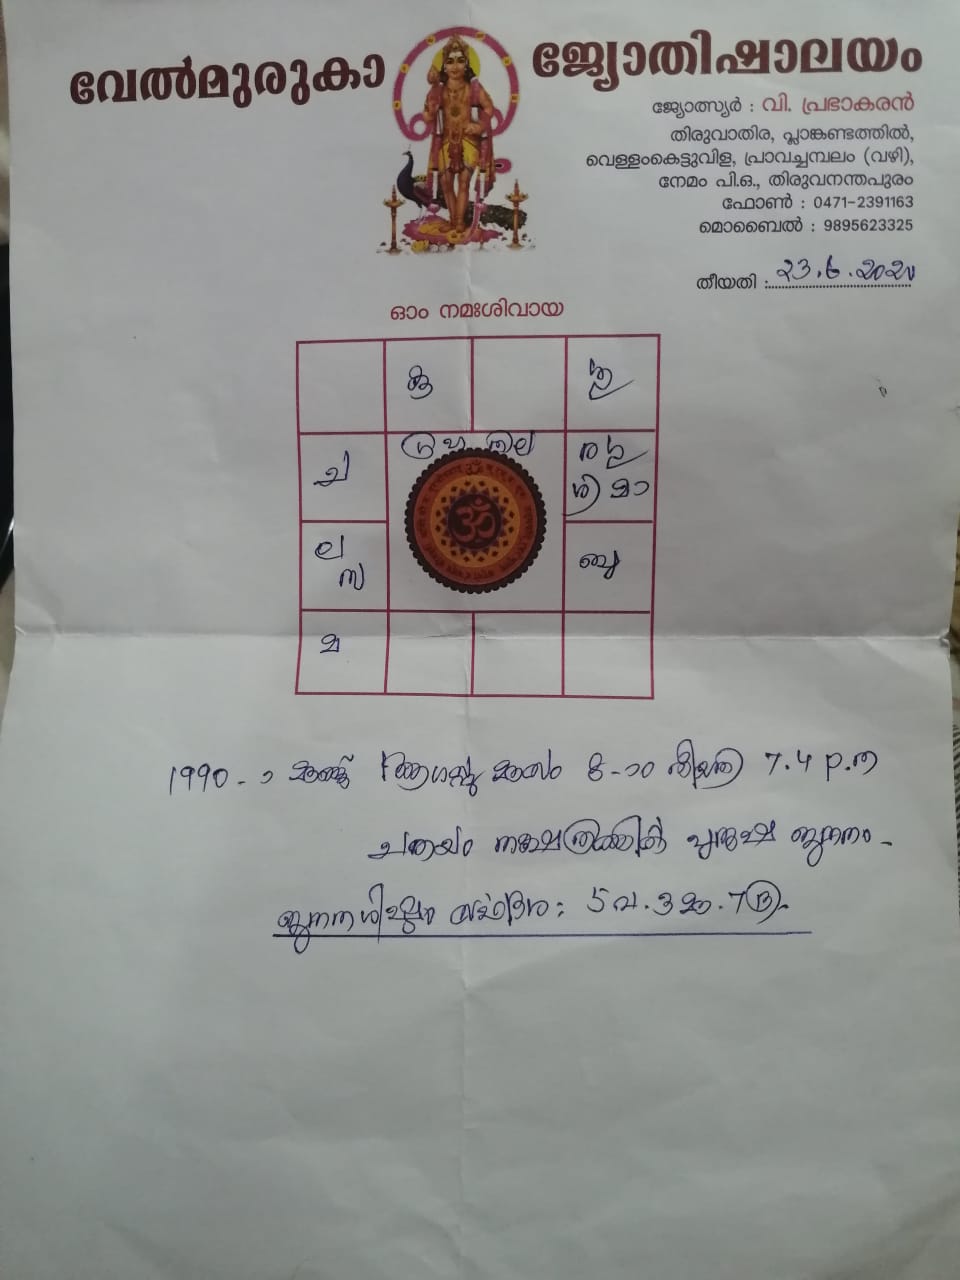 വേൽമുരുകാ ജ്യോതിഷാലയം
ജ്യോത്സ്യർ : വി. പ്രഭാകരൻ
തിരുവാതിര, പ്ലാങ്കണ്ടത്തിൽ,
വെള്ളംകെട്ടുവിള, പ്രാവച്ചമ്പലം (വഴി),
നേമം പി.ഒ., തിരുവനന്തപുരം
ഫോൺ : 0471-2391163
മൊബൈൽ : 9895623325
തീയതി : 23.6.2020
ഓം നമഃശിവായ
ച
ല
മ
1990-ാ 8-ാം തീയതി 7.4 p.m
ചതയം നക്ഷത്രത്തിൽ പുരുഷ ജനനം
ജനനശിഷ്ടം : 5 വ. 3 മാ. 7 ദി.